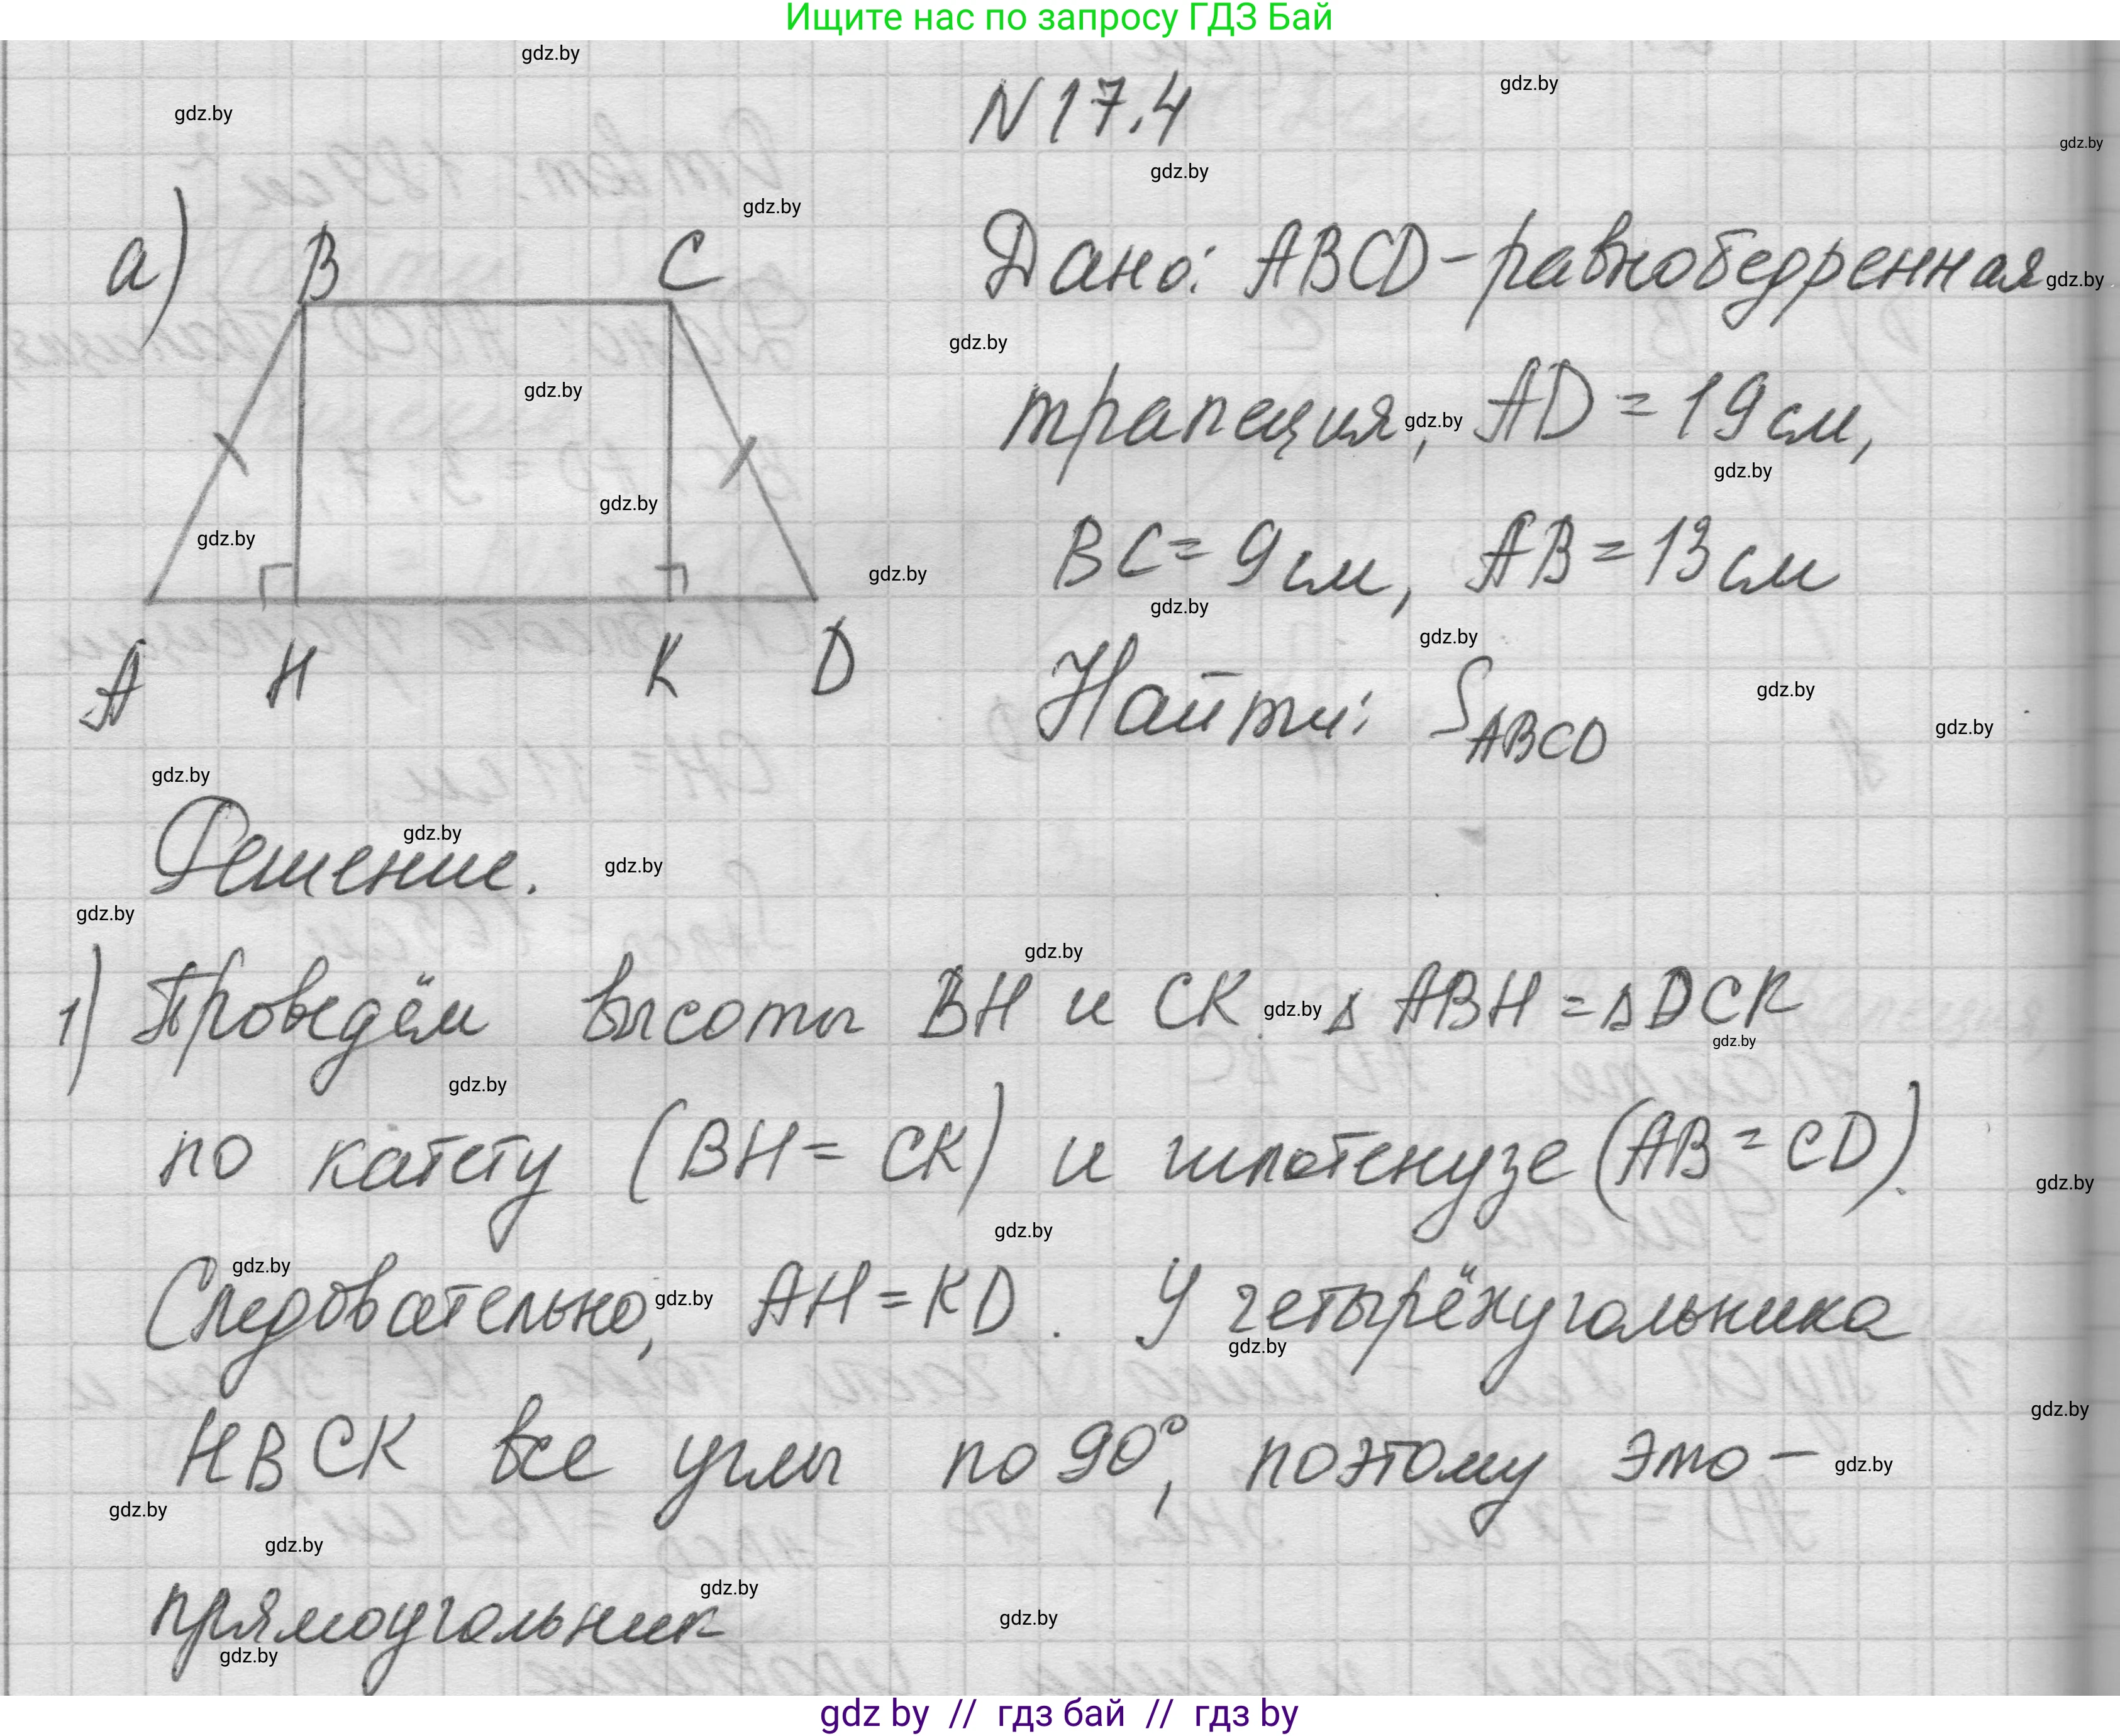 Ищите нас по запросу ГДЗ Бай
N 17.4
а)
B C
A H K D
Дано: ABCD-равнобедренная
трапеция, AD = 19 см,
BC = 9 см, AB = 13 см
Найти: S ABCD
Решение.
1) Проведём высоты BH и CK. ∆ ABH = ∆ DCK
по катету (BH = CK) и гипотенузе (AB = CD).
Следовательно, AH = KD. У четырёхугольника
HBCK все углы по 90°, поэтому это –
прямоугольник
gdz.by
gdz by // гдз бай // гдз by